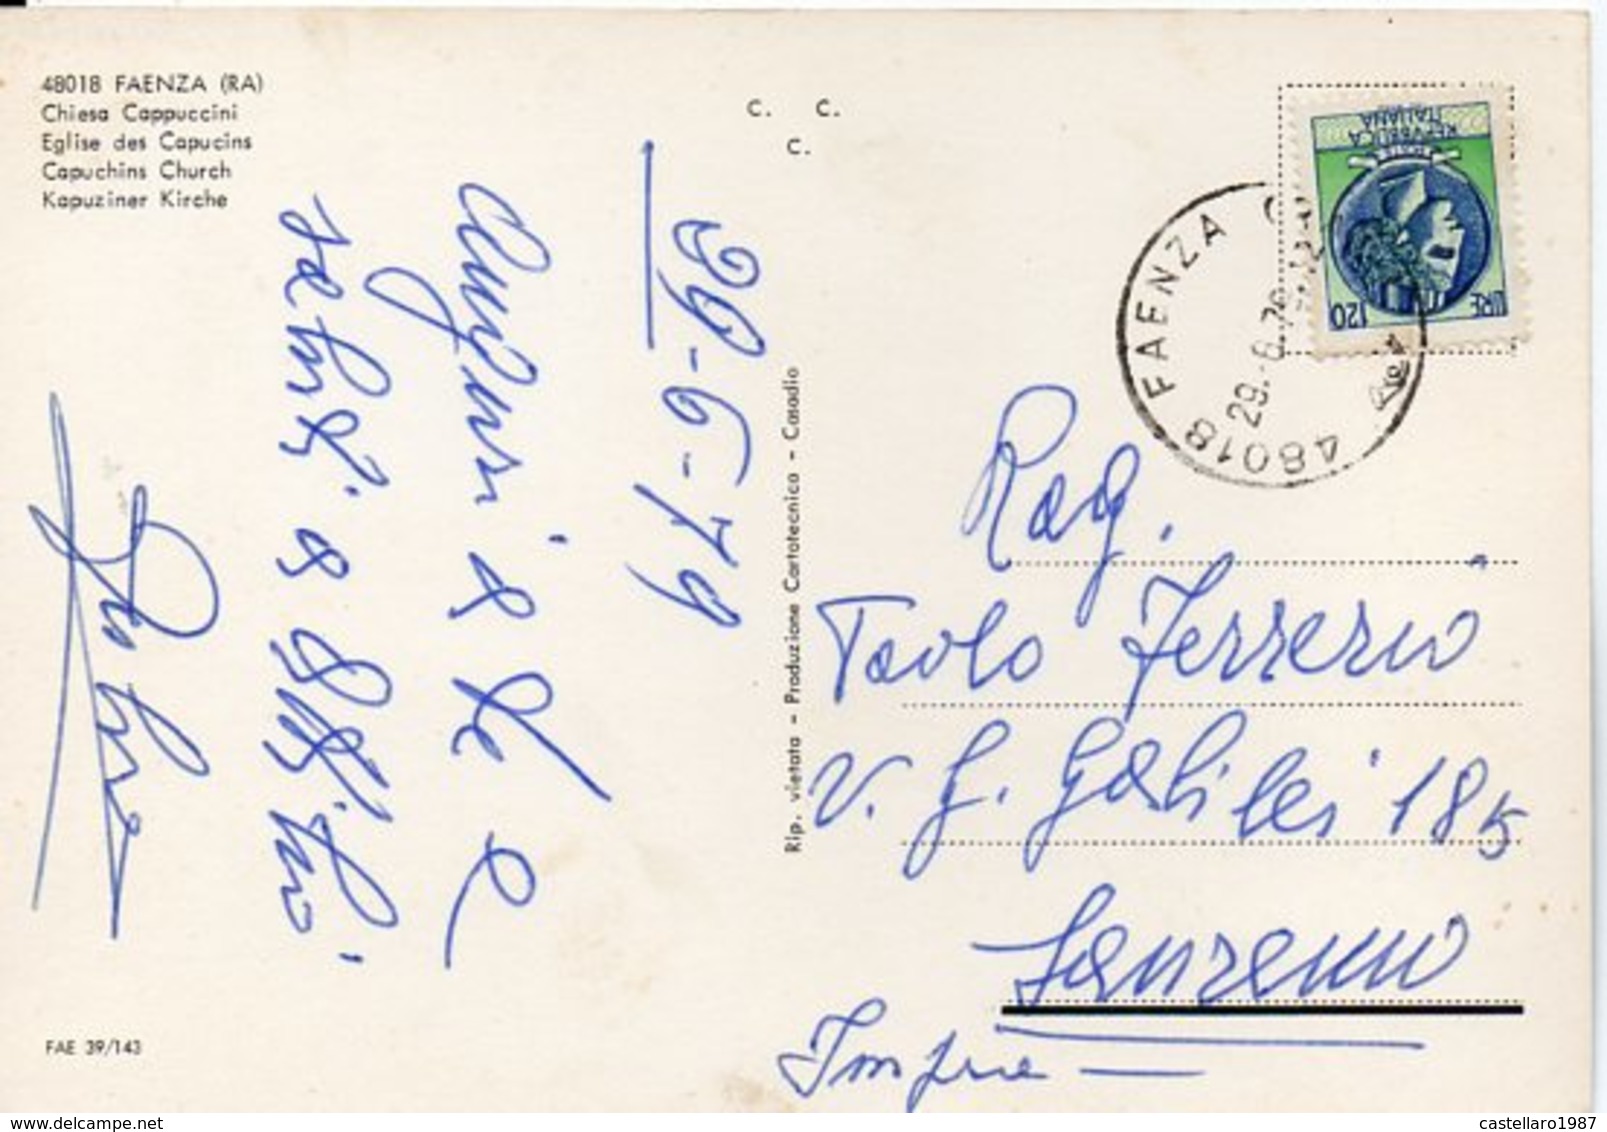 48018 FAENZA (RA)
Chiesa Cappuccini
Eglise des Capucins
Capuchins Church
Kapuziner Kirche
C. C.
C.
REPVBBLICA
ITALIANA
LIRE 120
FAENZA
29.-6.79
48018
29-6-79
Auguri a Te e
saluti a
Rip. vietata - Produzione Cartotecnica - Casadio
Rag.
Paolo Ferrero
V. G. Galilei 185
Sanremo
FAE 39/143
castellaro1987
www.delcampe.net